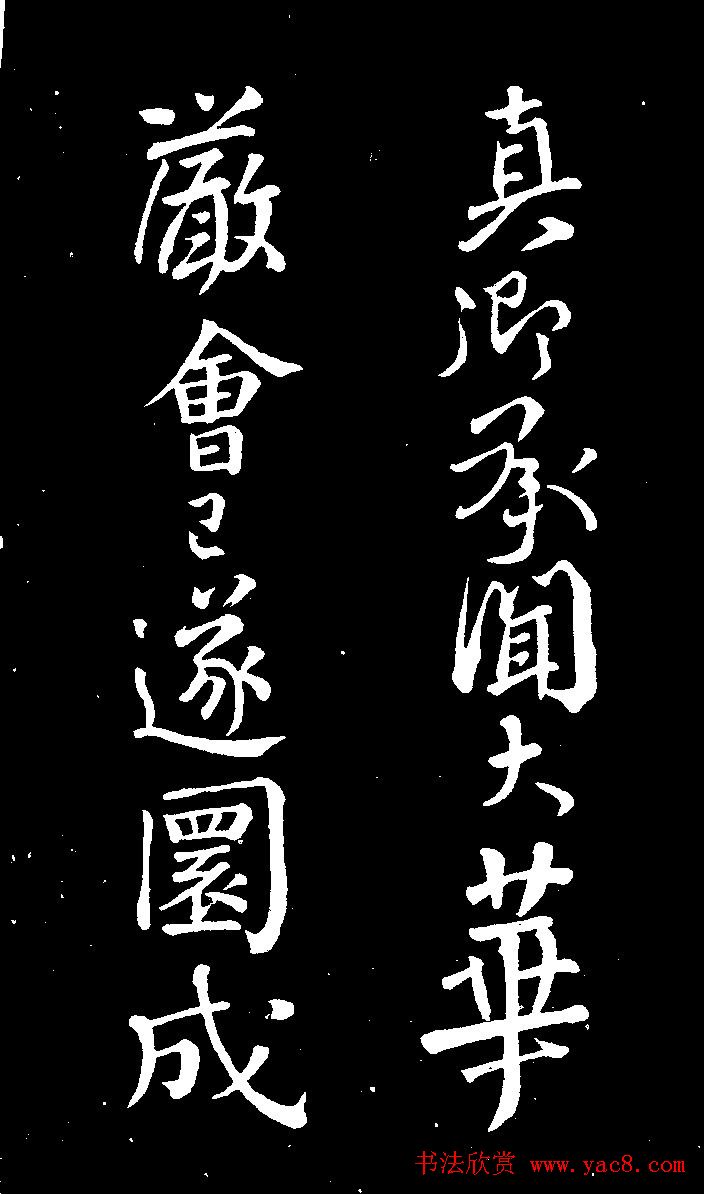 真卿承聞大華
嚴會已遂圓成
书法欣赏 www.yac8.com